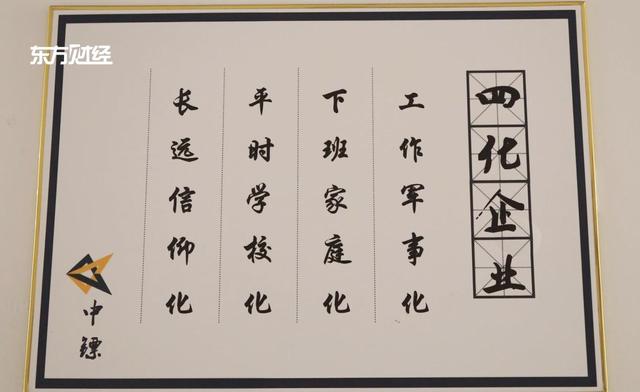 东方财经
四化企业
工作军事化
下班家庭化
平时学校化
长远信仰化
中镖